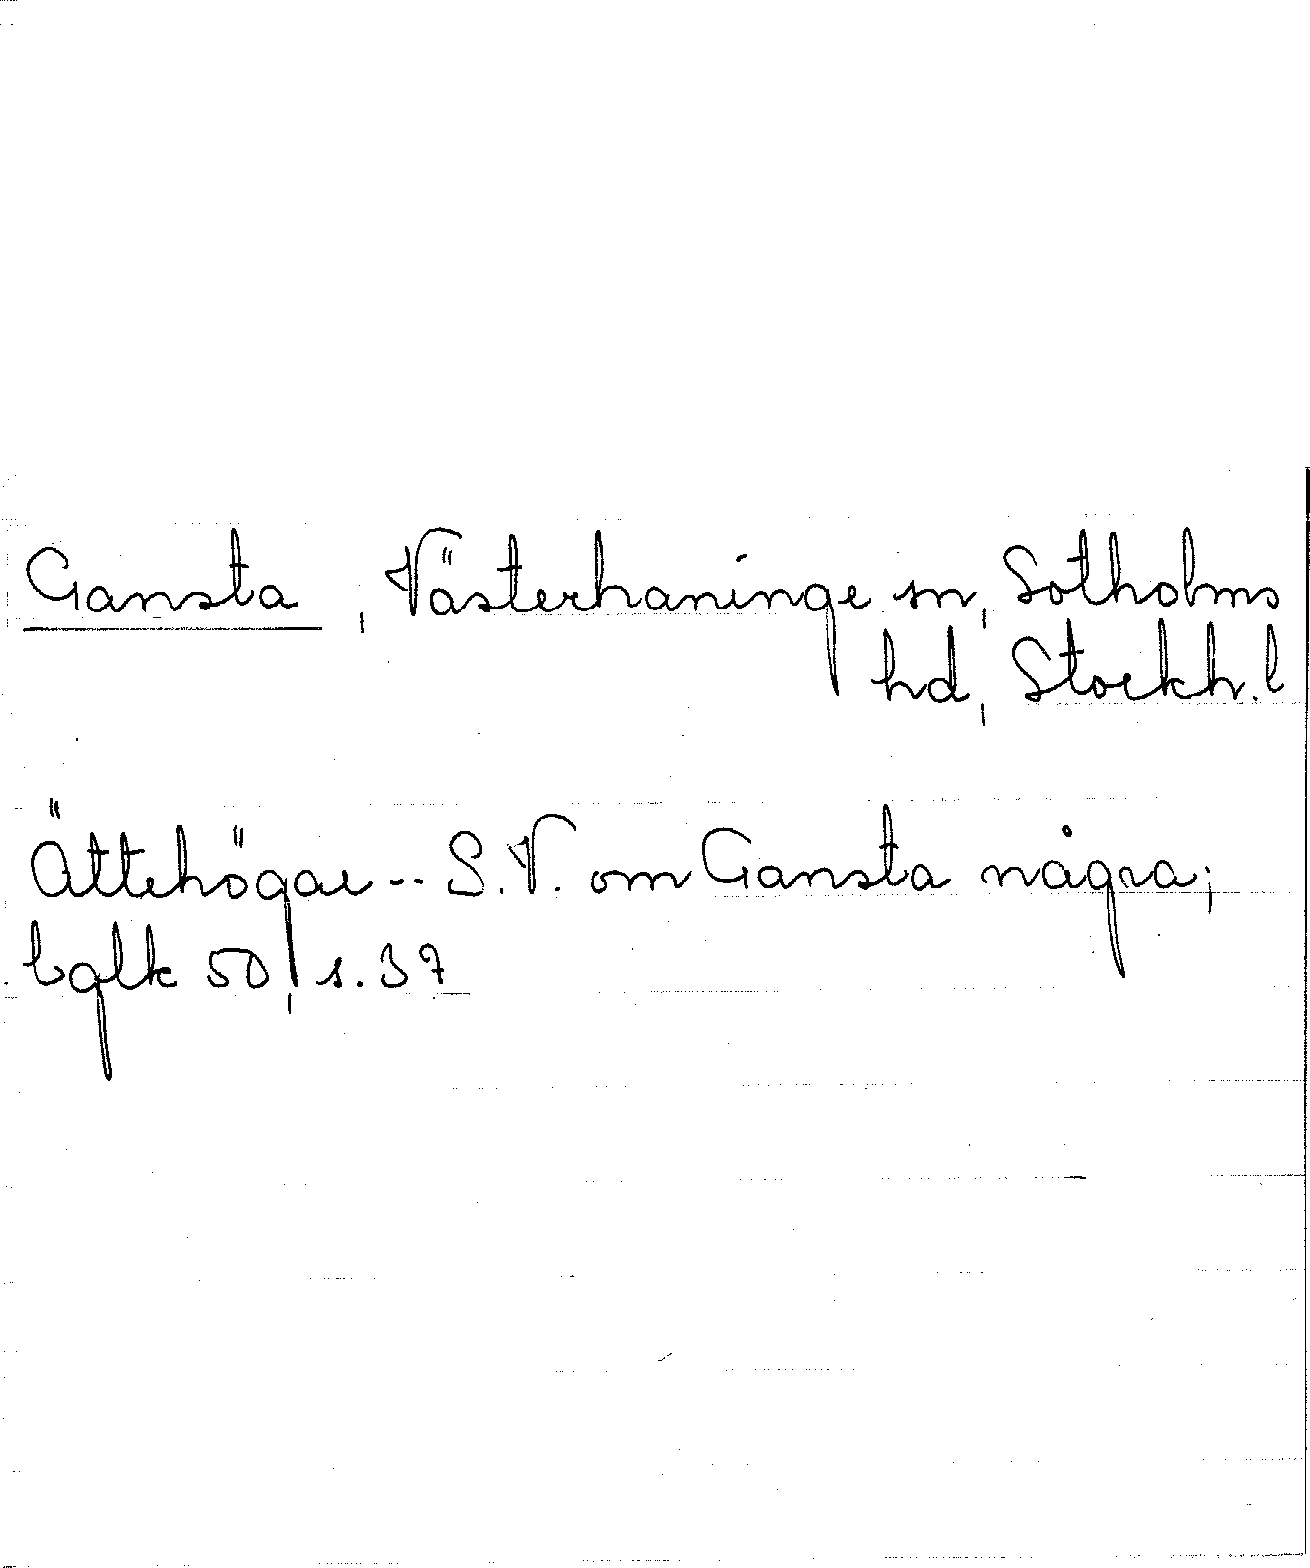 Gansta, Västerhaninge sn, Sotholms
hd, Stockh. l
Ättehögar -- S.V. om Gansta några;
bglk 50, s. 37